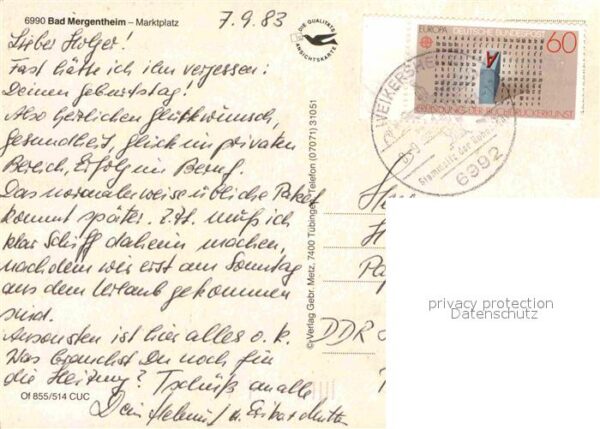 6990 Bad Mergentheim – Marktplatz
7.9.83
Lieber Holger!
Fast hätte ich ihn vergessen:
Deinen Geburtstag!
Also herzlichen Glückwunsch,
Gesundheit, Glück im privaten
Bereich, Erfolg im Beruf.
Das normalerweise übliche Paket
kommt später. Z.Zt. muß ich
klar Schiff daheim machen,
nachdem wir erst am Sonntag
aus dem Urlaub gekommen
sind.
Ansonsten ist hier alles o.k.
Was brauchst Du noch für
die Heizung? Tschüß an alle
Dein Helmut u.
Of 855/514 CUC
© Verlag Gebr. Metz, 7400 Tübingen, Telefon (07071) 31051
DIE QUALITÄTS
ANSICHTSKARTE
EUROPA DEUTSCHE BUNDESPOST
60
A
ERFINDUNG DER BUCHDRUCKERKUNST
WEIKERSHEIM
Stammsitz der
6992
DDR
privacy protection
Datenschutz